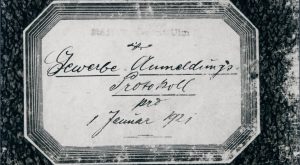 Gewerbe-Anmeldungs-
Protokoll
pro
1 Januar 1921